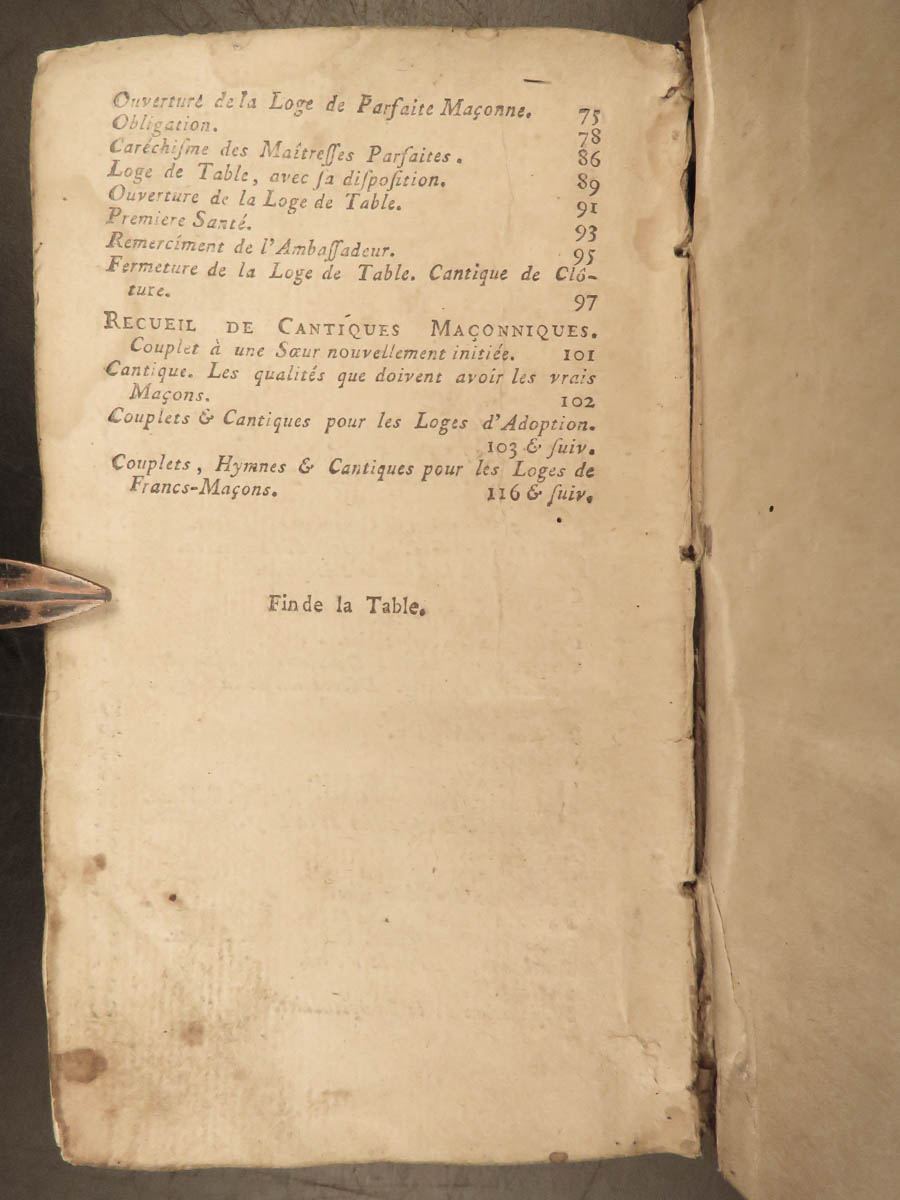 Ouverture de la Loge de Parfaite Maçonne. 75
Obligation. 78
Caréchiſme des Maîtreſſes Parfaites. 86
Loge de Table, avec ſa diſpoſition. 89
Ouverture de la Loge de Table. 91
Premiere Santé. 93
Remerciment de l'Ambaſſadeur. 95
Fermeture de la Loge de Table. Cantique de Clô-
ture. 97
RECUEIL DE CANTIQUES MAÇONNIQUES.
Couplet à une Sœur nouvellement initiée. 101
Cantique. Les qualités que doivent avoir les vrais
Maçons. 102
Couplets & Cantiques pour les Loges d'Adoption.
103 & ſuiv.
Couplets, Hymnes & Cantiques pour les Loges de
Francs-Maçons. 116 & ſuiv.
Fin de la Table.